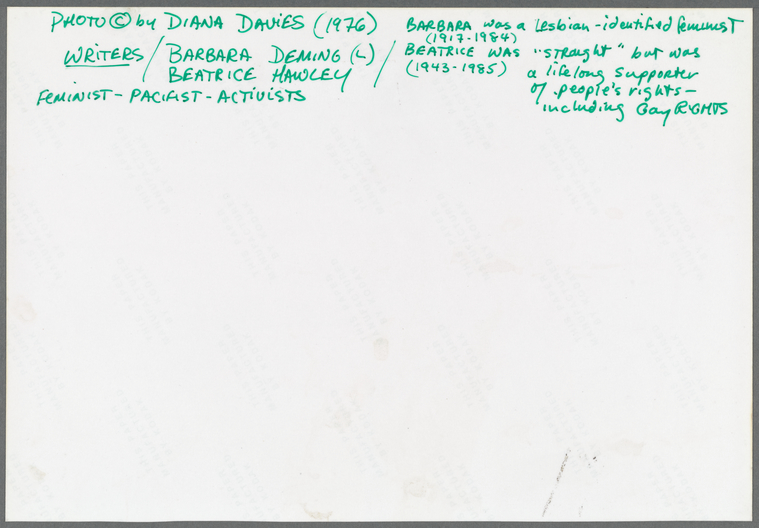 PHOTO © by DIANA DAVIES (1976)
WRITERS / BARBARA DEMING (L) /
BEATRICE HAWLEY
FEMINIST - PACIFIST - ACTIVISTS
BARBARA was a Lesbian-identified feminist
(1917-1984)
BEATRICE WAS "straight" but was
(1943-1985) a lifelong supporter
of people's rights -
including Gay RIGHTS